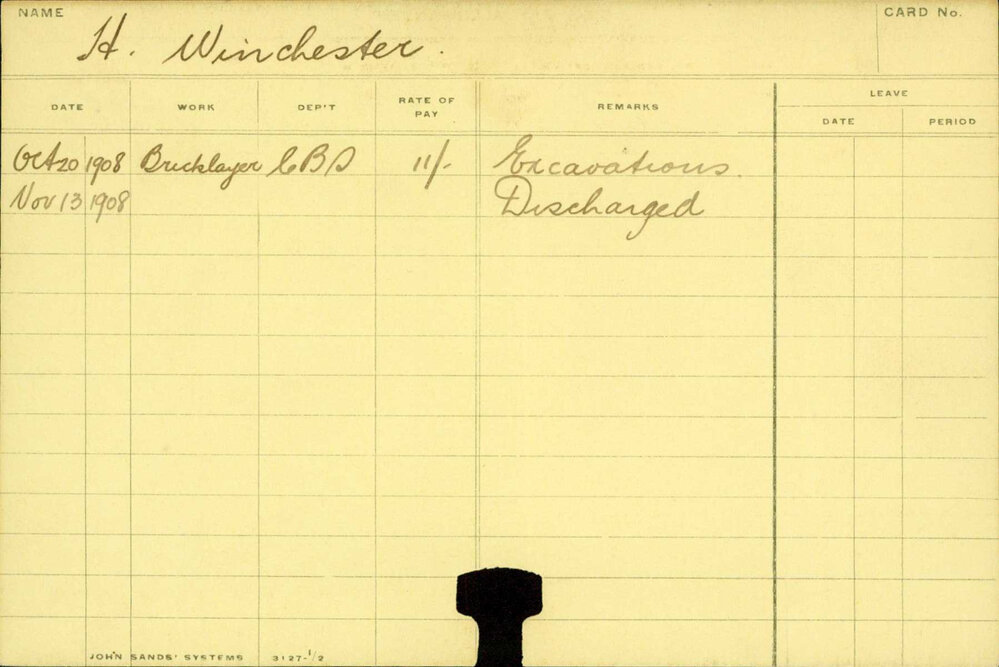 NAME
CARD No.
H. Winchester.
DATE WORK DEP'T RATE OF PAY REMARKS LEAVE
DATE PERIOD
Oct 20 1908 Bricklayer C B S 11/- Excavations.
Nov 13 1908 Discharged
JOHN SANDS' SYSTEMS 3127-1/2